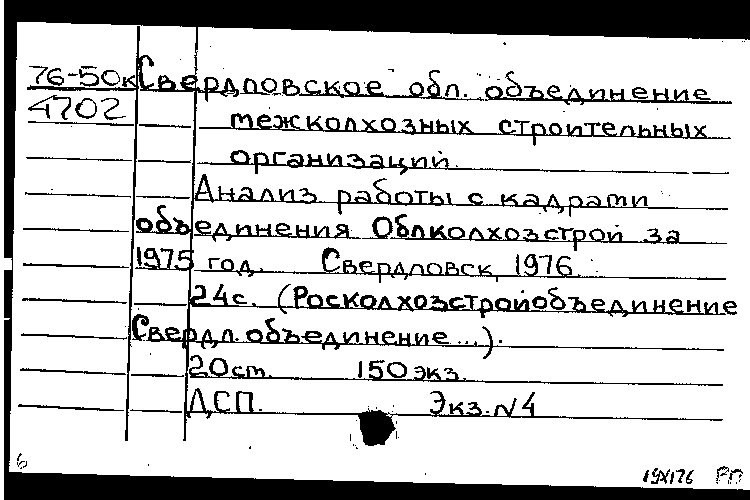 76-50к Свердловское обл. объединение
4702 межколхозных строительных
организаций.
Анализ работы с кадрами
объединения Облколхозстрой за
1975 год. Свердловск, 1976.
24с. (Росколхозстройобъединение
Свердл. объединение...).
20см. 150 экз.
ДСП. Экз. №4
6